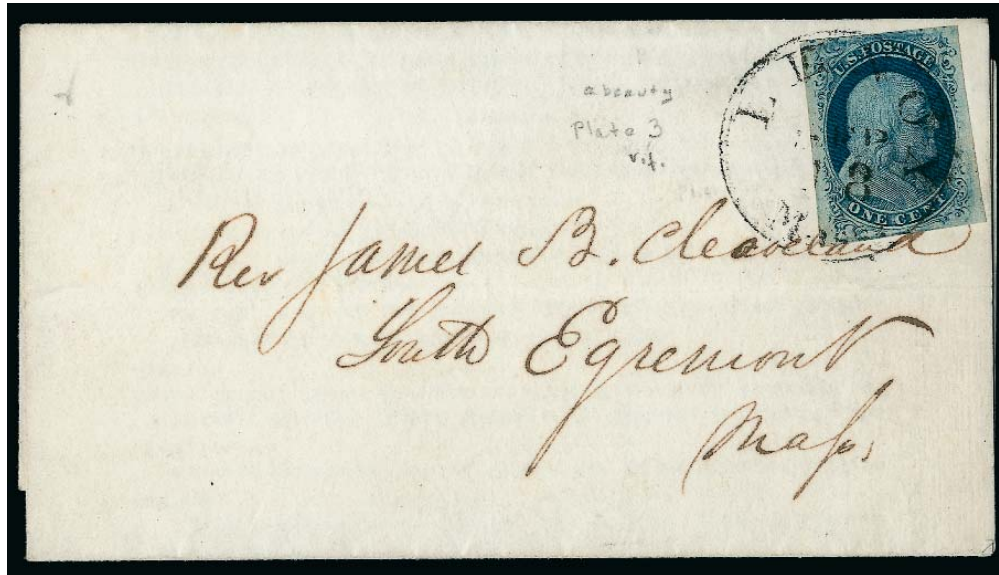 a beauty
Plate 3
v.f.
U.S. POSTAGE
ONE CENT
8
Rev James B. Cleaveland
South Egremont
Mass,